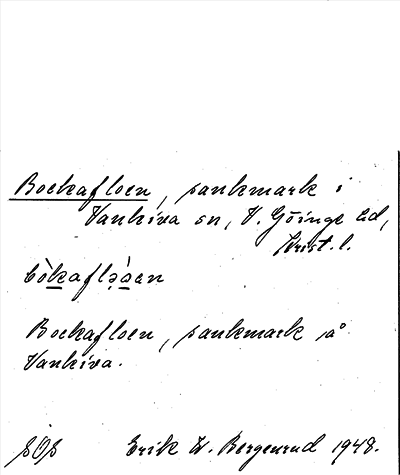 Bockafloen, sankmark i
Vankiva sn, V. Göinge hd,
Krist. l.
Bockafloen, sankmark å
Vankiva.
SOS Erik W. Bergenrud 1948.